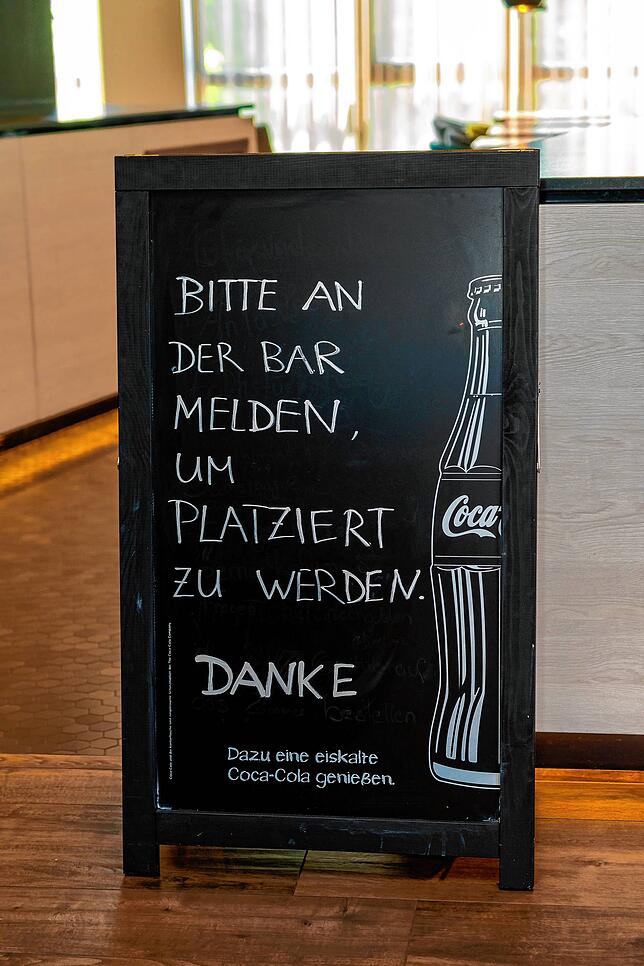 BITTE AN
DER BAR
MELDEN,
UM
PLATZIERT
ZU WERDEN.
DANKE
Coca
Dazu eine eiskalte
Coca-Cola genießen.